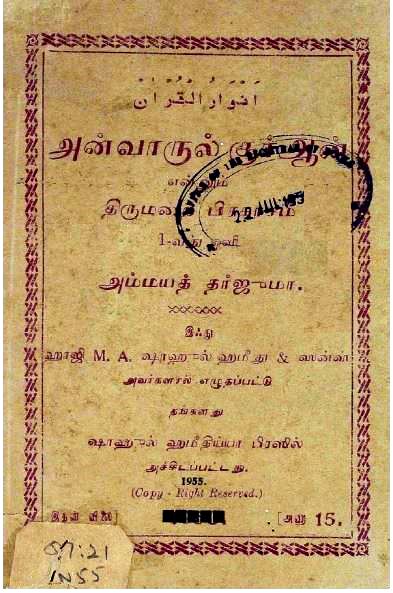 انوار القران
அன்வாருல் குர்ஆன்
என்னும்
திருமறை பிரகாசம்
1-வது
அம்மயத் தர்ஜுமா.
இஃது
ஹாஜி M. A. ஷாஹுல் ஹமீது & ஸன்ஸ்
அவர்களால் எழுதப்பட்டு
தங்களது
ஷாஹுல் ஹமீதிய்யா பிரஸில்
அச்சிடப்பட்டது.
1955.
(Copy - Right Reserved.)
இதன் விலை] [அணா 15.
S7:21
IN55